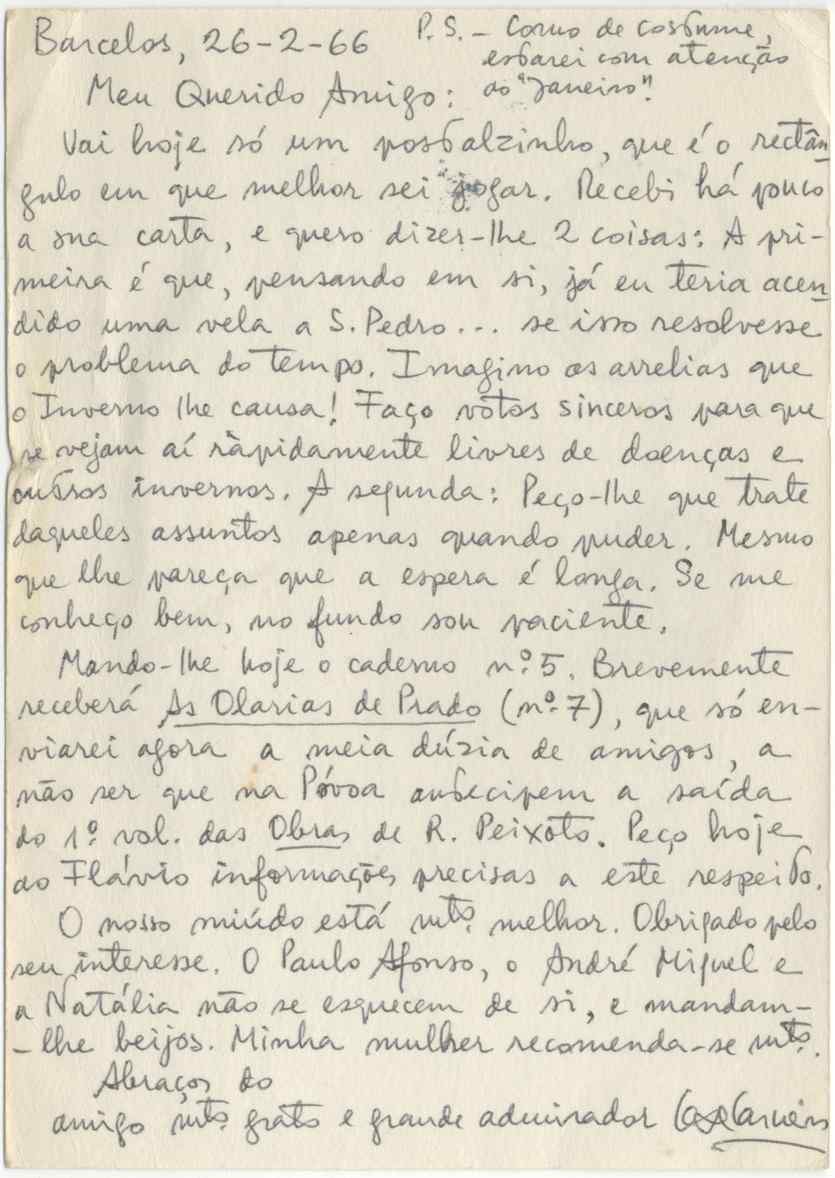 Barcelos, 26-2-66
P.S. - Como de costume,
estarei com atenção
ao "Janeiro".
Meu Querido Amigo:
Vai hoje só um postalzinho, que é o rectân
gulo em que melhor sei jogar. Recebi há pouco
a sua carta, e quero dizer-lhe 2 coisas: A pri-
meira é que, pensando em si, já eu teria acen
dido uma vela a S. Pedro... se isso resolvesse
o problema do tempo. Imagino as arrelias que
o Inverno lhe causa! Faço votos sinceros para que
se vejam aí ràpidamente livres de doenças e
outros invernos. A segunda: Peço-lhe que trate
daqueles assuntos apenas quando puder. Mesmo
que lhe pareça que a espera é longa. Se me
conheço bem, no fundo sou paciente.
Mando-lhe hoje o caderno nº. 5. Brevemente
receberá As Olarias de Prado (nº. 7), que só en-
viarei agora a meia dúzia de amigos, a
não ser que na Póvoa antecipem a saída
do 1º. vol. das Obras de R. Peixoto. Peço hoje
ao Flávio informações precisas a este respeito.
O nosso miúdo está mtº. melhor. Obrigado pelo
seu interesse. O Paulo Afonso, o André Miguel e
a Natália não se esquecem de si, e mandam-
-lhe beijos. Minha mulher recomenda-se mtº.
Abraços do
amigo mtº. grato e grande admirador